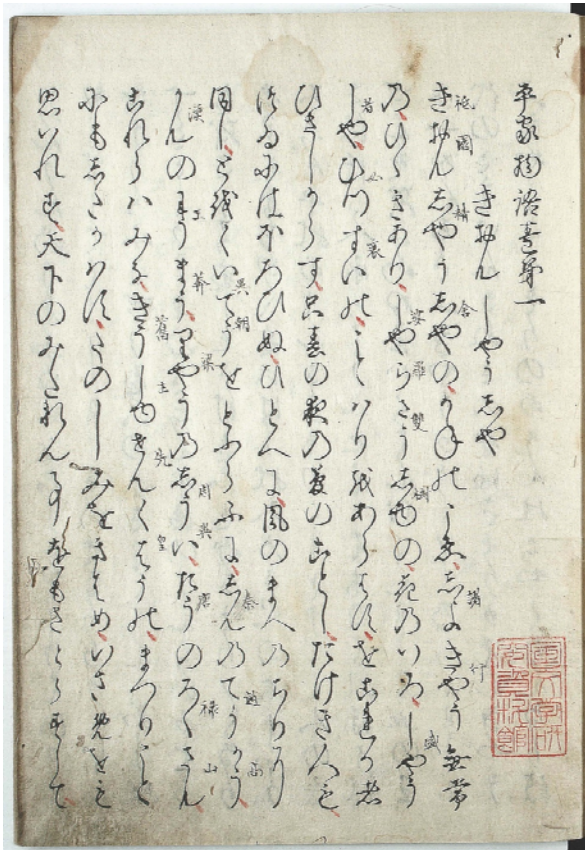 平家物語巻第一
きおんしやうしや
祇園精舎諸行
きおんしやうしやのかねのこゑ、しよきやう無常
娑羅雙樹盛
乃ひゝきあり、しやらさうしゆの花のいろ、しやう
者必衰
しやひつすいのことはりをあらはす、をこれる者
ひさしからす、只春の夜の夢のことし、たけき人も、
つゐにはほろひぬ、ひとへに風のまへのちりに
異朝秦趙高
同し、とをくいてうをとふらふに、しんのてうかう、
漢王莽梁周異唐禄山
かんのわうまう、りやうのしうい、たうのろくさん、
舊主先皇
これらはみなきうしゆせんくわうのまつりこと
にもしたかはす、たのしみをきはめ、いさめをも
思いれす、天下のみたれん事をもさとらすして、